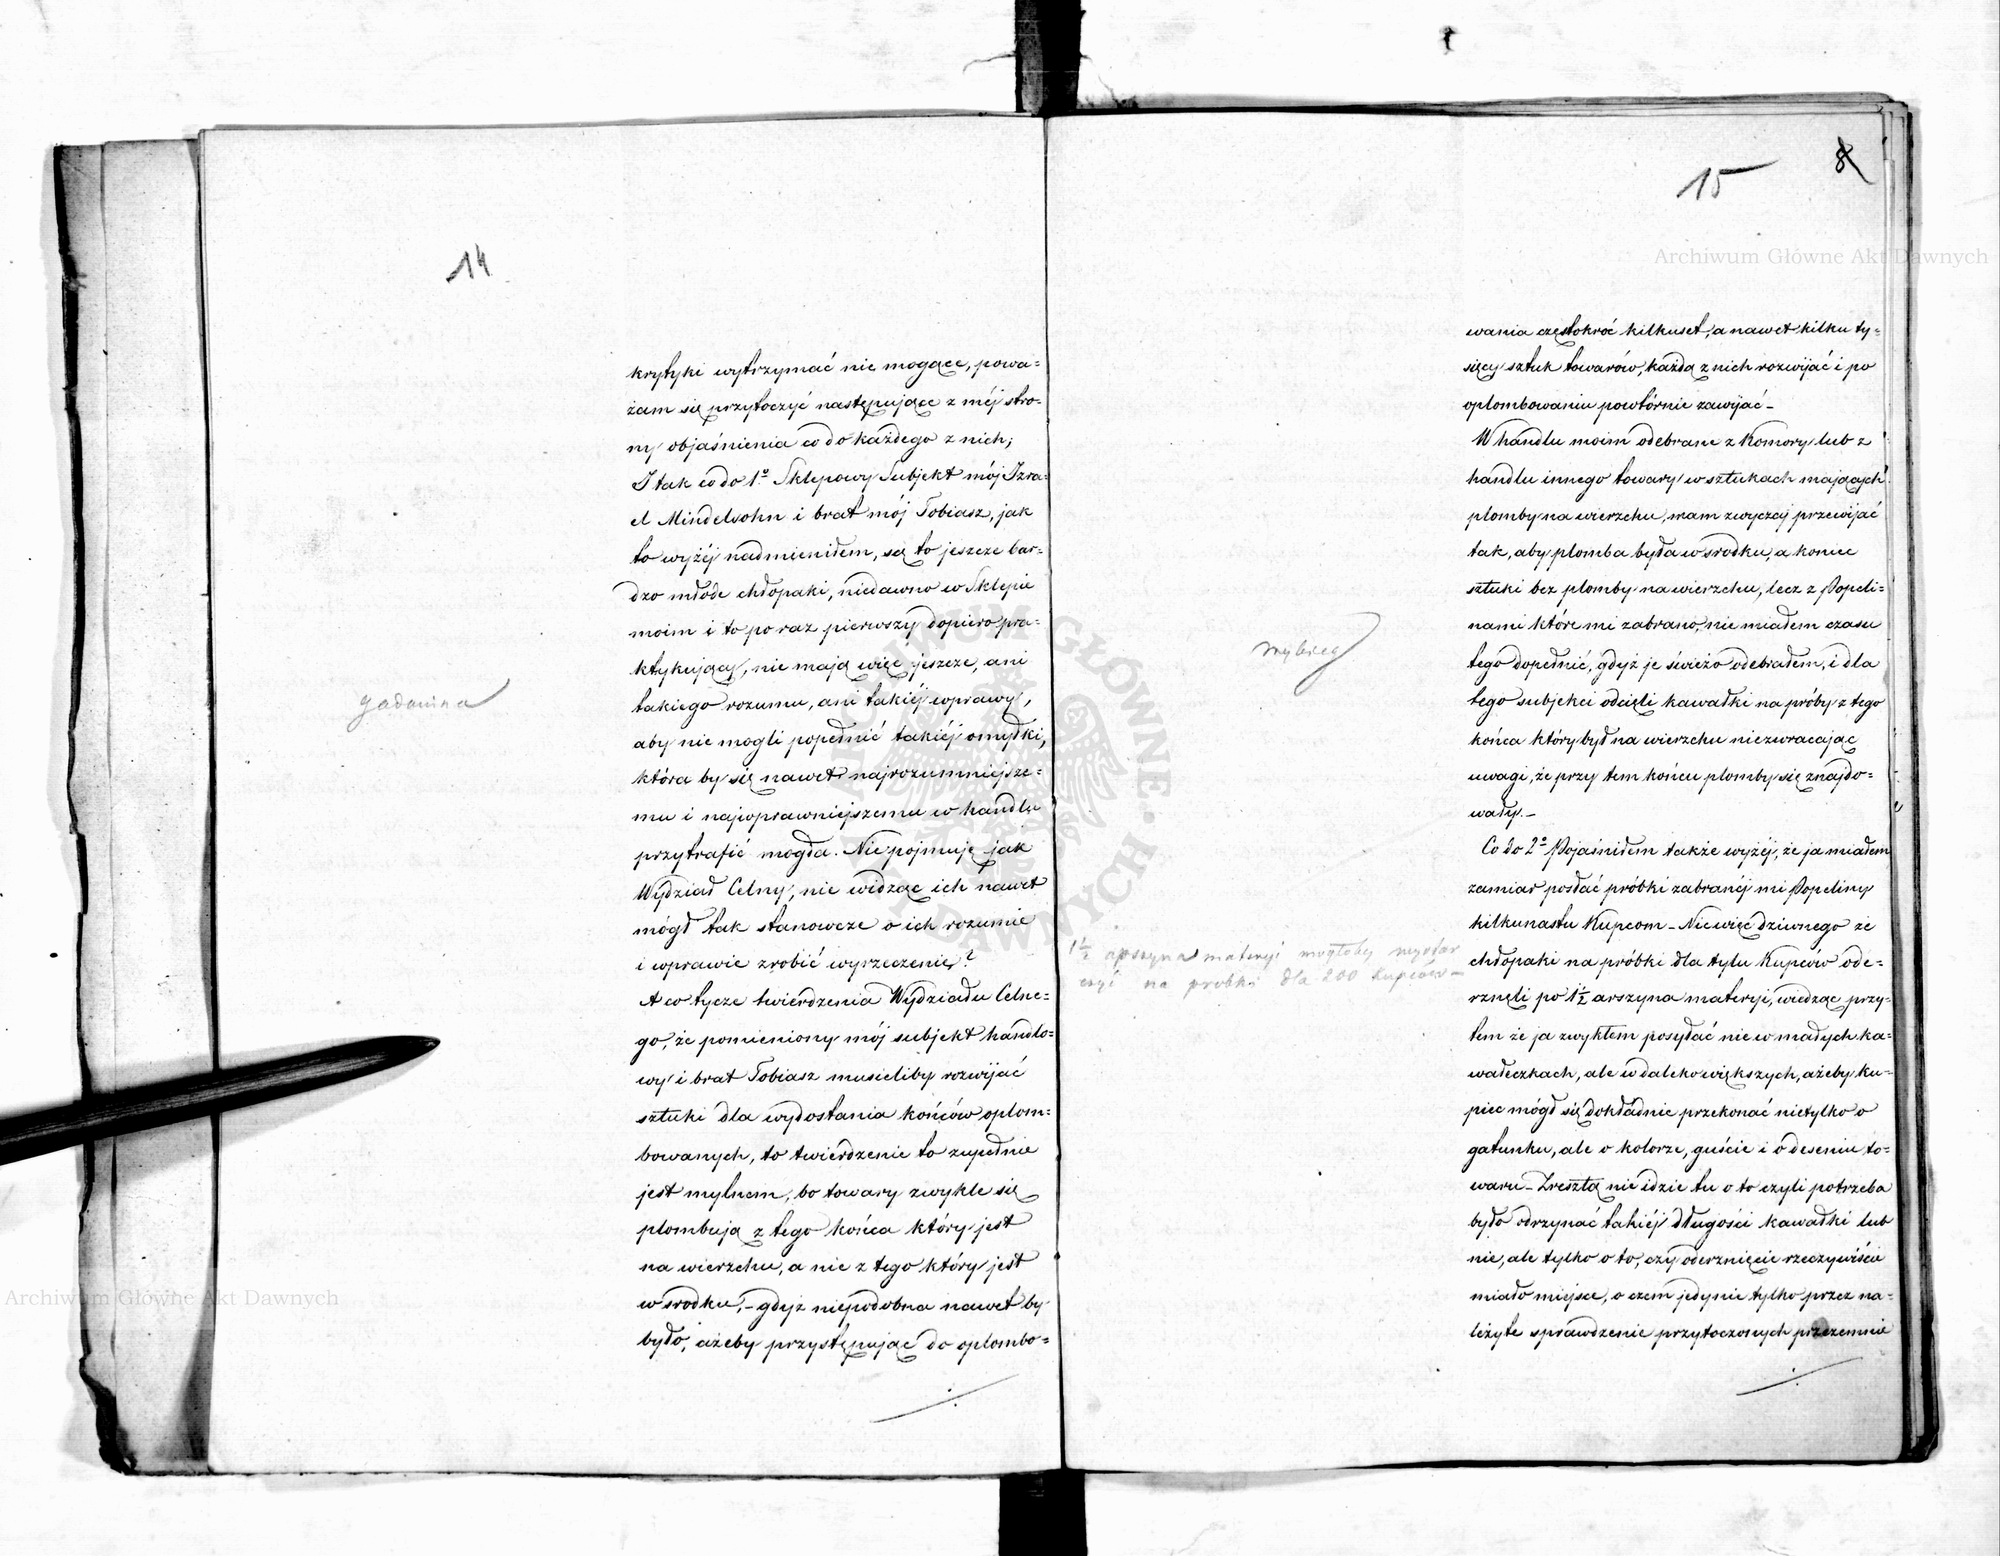 14
krytyki wytrzymać nie mogące, powa=
żam się przytoczyć następujące z mój stro-
ny objaśnienia co do każdego z nich;
I tak co do 1º Sklepowy Subjekt mój Izra=
el Mindelsohn i brat mój Tobiasz, jak
to wyżéj nadmieniłem, są to jeszcze bar=
dzo młode chłopaki, niedawno w Sklepie
moim i to po raz pierwszy dopiero pra=
ktykujący, nie mają więc jeszcze, ani
takiego rozumu, ani takiéj wprawy,
aby nie mogli popełnić takiéj omyłki,
która by się nawet najrozumniejsze=
mu i najwprawniejszemu w handlu
przytrafić mogła. Nie pojmuję jak
Wydział Celny, nie widząc ich nawet
mógł tak stanowcze o ich rozumie
i wprawie zrobić wyrzeczenie?
A co tycze twierdzenia Wydziału Celne=
go, że pomieniony mój subjekt handlo=
wy i brat Tobiasz musieliby rozwijać
sztuki dla wydostania końców oplom=
bowanych, to twierdzenie to zupełnie
jest mylnem, bo towary zwykle się
plombują z tego końca który jest
na wierzchu, a nie z tego który jest
w srodku,- gdyż niepodobna nawet by
było, ażeby przystępując do oplombo=
gadanina
15
8
wania częstokroć kilkuset, a nawet kilku ty=
sięcy sztuk towarów, każdą z nich rozwijać i po
oplombowaniu powtórnie zawijać -
W handlu moim odebrane z Komory lub z
handlu innego towary w sztukach mających
plomby na wierzchu, mam zwyczaj przewijać
tak, aby plomba była w srodku, a koniec
sztuki bez plomby na wierzchu, lecz z Popeli=
nami które mi zabrano, nie miałem czasu
tego dopełnić, gdyż je świeżo odebrałem, i dla
tego subjekci odcięli kawałki na próby z tego
końca który był na wierzchu niezwracając
uwagi, że przy tem końcu plomby się znajdo=
wały.-
Co do 2º Pojaśniłem także wyżéj, że ja miałem
zamiar posłać próbki zabranéj mi Popeliny
kilkunastu Kupcom - Nic więc dziwnego że
chłopaki na próbki dla tylu Kupców ode=
rznęli po 1½ arszyna materyi, wiedząc przy=
tem że ja zwykłem posyłać nie w małych ka=
wałeczkach, ale w daleko większych, ażeby ku=
piec mógł się dokładnie przekonać nietylko o
gatunku, ale o kolorze, guście i o deseniu to=
waru - Zresztą nie idzie tu o to czyli potrzeba
było odrzynać takiéj długości kawałki lub
nie, ale tylko o to, czy oderznięcie rzeczywiście
miało miejsce, o czem jedynie tylko przez na=
leżyte sprawdzenie przytoczonych przezemnie
wybieg
1½ arszyna materyi mogłoby wystar
czyć na probki dla 200 kupców -
Archiwum Główne Akt Dawnych
Archiwum Główne Akt Dawnych